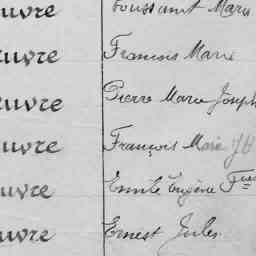 uvre Toussaint Marie
uvre François Marie
uvre Pierre Marie Joseph
uvre François Marie
uvre Emile Eugène
uvre Ernest Jules